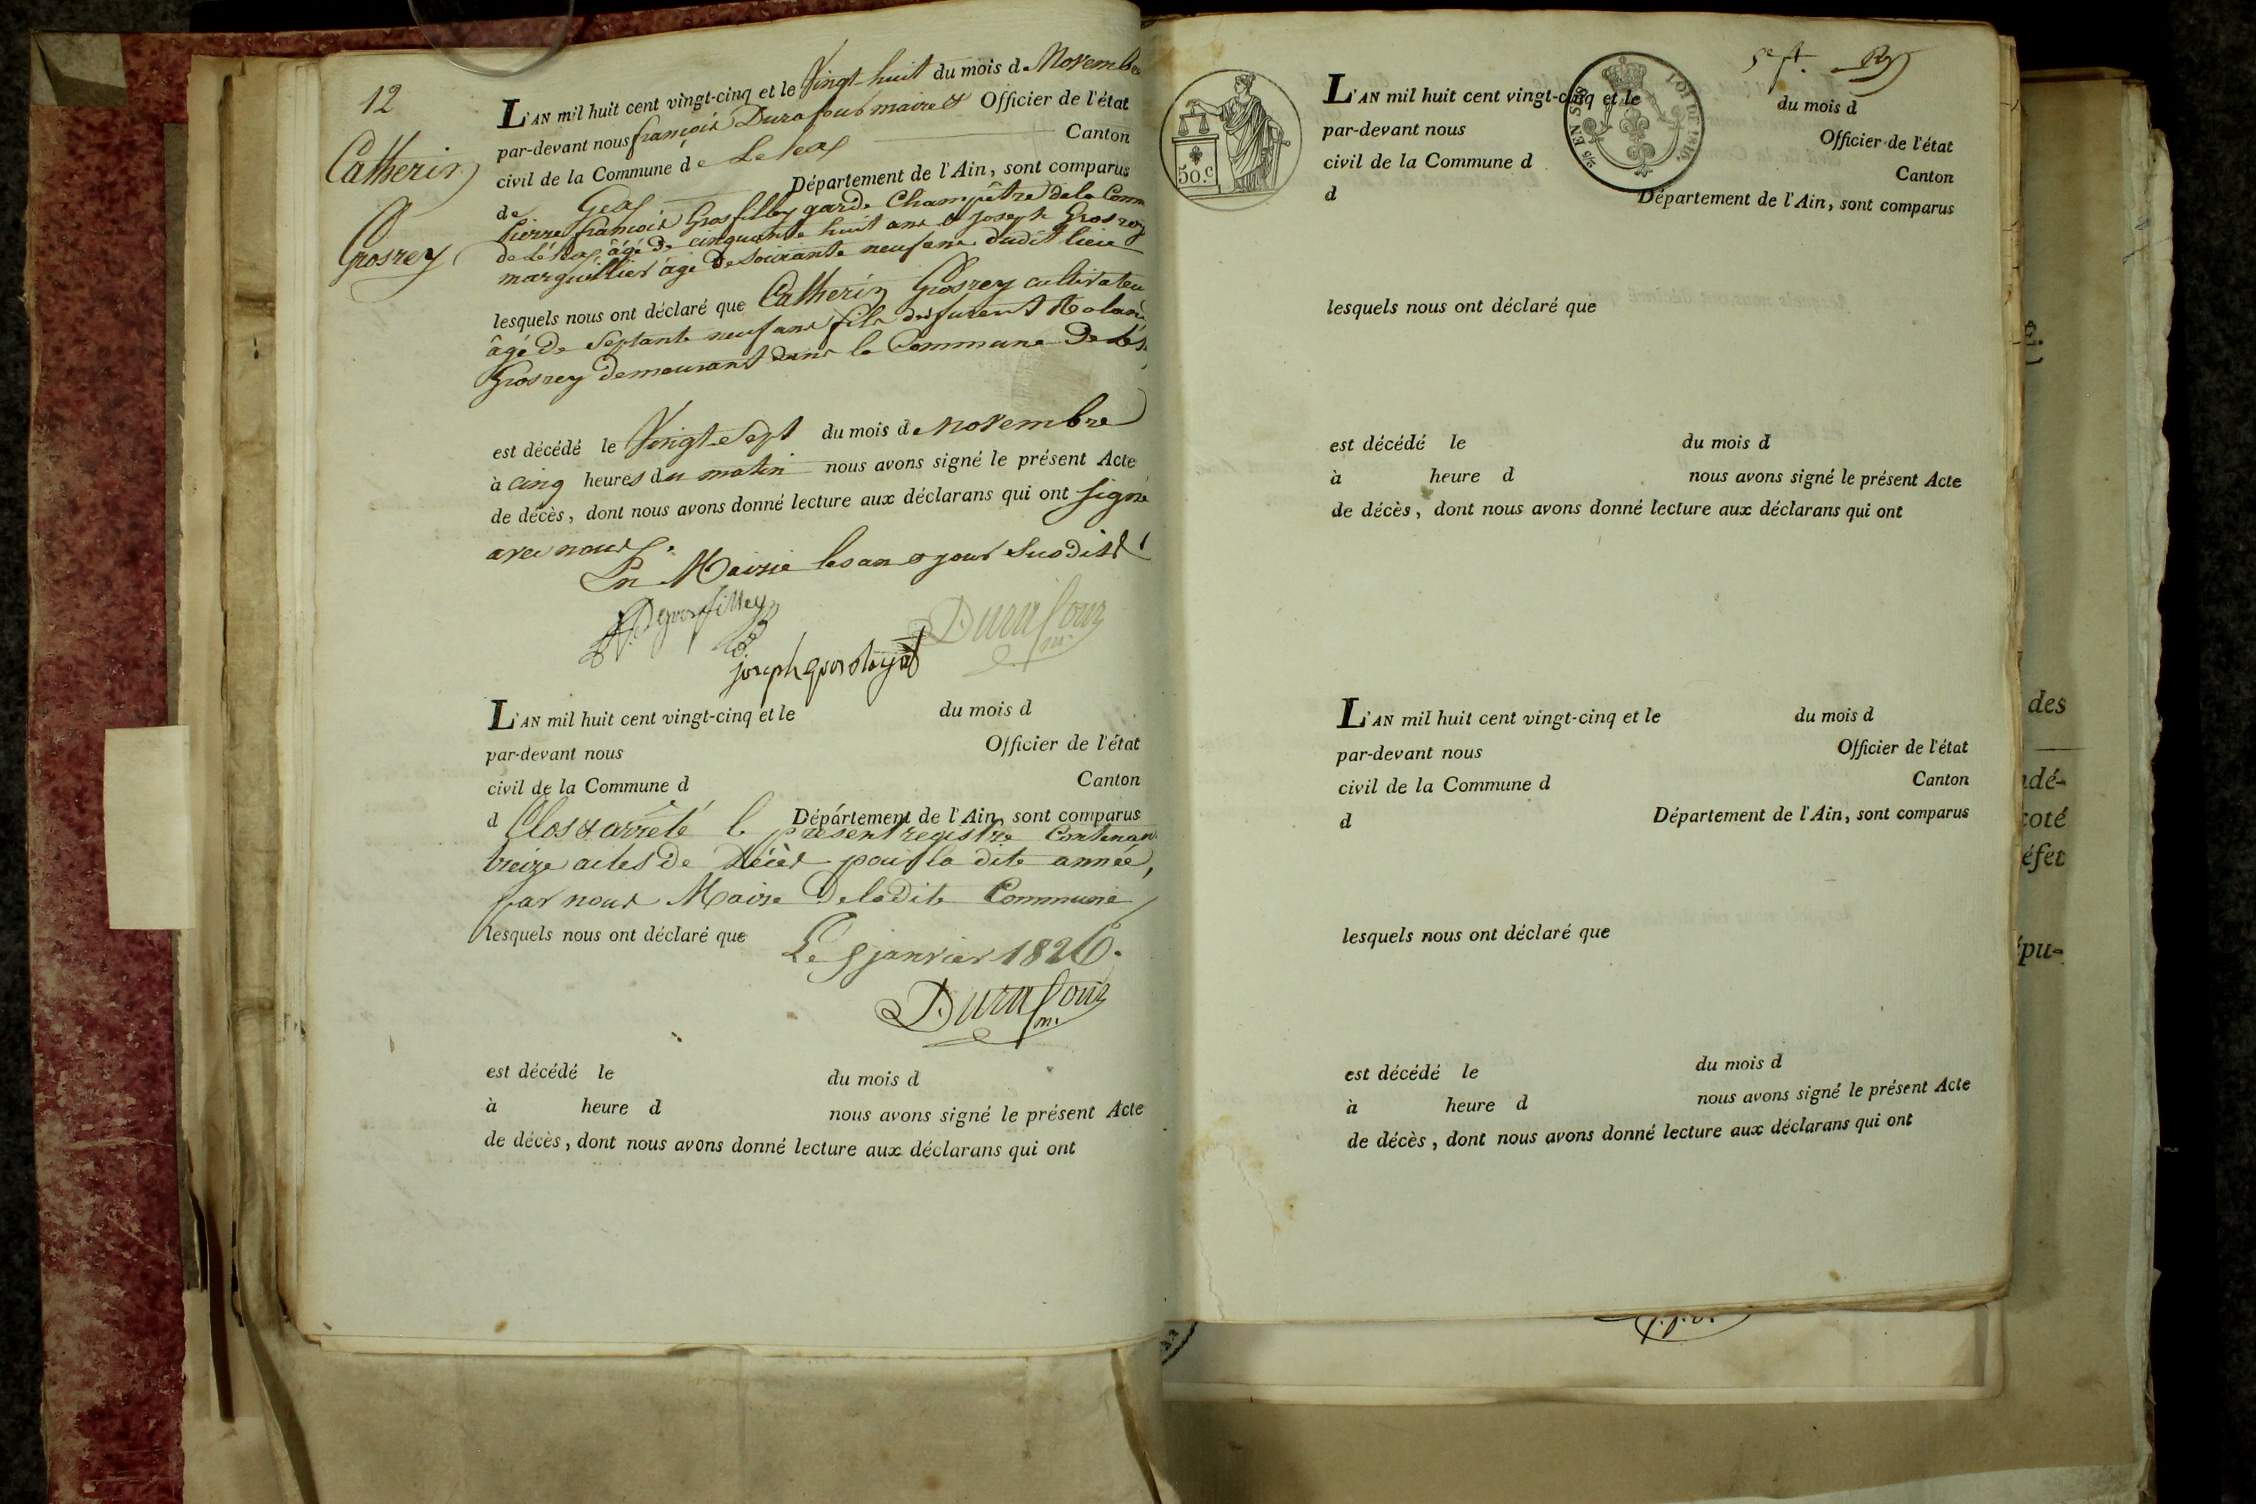 12
Catherin
Grosrey
L'AN mil huit cent vingt-cinq et le Vingt-huit du mois de Novembre
par-devant nous françois Durafour maire & Officier de l'état
civil de la Commune de Lelex Canton
de Gex Département de l'Ain, sont comparus
Pierre françois Grosfilley garde Champêtre de la Comm
de Lélex, âgé de cinquante huit ans & Joseph Grosrey
marguillier âgé de soixante neuf ans dudit lieu
lesquels nous ont déclaré que Catherin Grosrey cultivateu
âgé de Septante neuf ans fils des furent
Grosrey demeurant dans la Commune De Lé
est décédé le Vingt-Sept du mois de Novembre
à cinq heures du matin nous avons signé le présent Acte
de décès, dont nous avons donné lecture aux déclarans qui ont signé
avec nous.
En Mairie les an & jour susdits
grosfilley
Durafour
m.
joseph gros Rey
L'AN mil huit cent vingt-cinq et le du mois d
par-devant nous Officier de l'état
civil de la Commune d Canton
d Département de l'Ain, sont comparus
Clos & arrêté le présent registre Contenan
treize actes de Décès pour la dite année,
par nous Maire De ladite Commune
lesquels nous ont déclaré que
Le janvier 1826.
Durafour
m.
est décédé le du mois d
à heure d nous avons signé le présent Acte
de décès, dont nous avons donné lecture aux déclarans qui ont
50.c
5/5 EN SUS
LOI DE 1816.
L'AN mil huit cent vingt-cinq et le du mois d
par-devant nous Officier de l'état
civil de la Commune d Canton
d Département de l'Ain, sont comparus
lesquels nous ont déclaré que
est décédé le du mois d
à heure d nous avons signé le présent Acte
de décès, dont nous avons donné lecture aux déclarans qui ont
L'AN mil huit cent vingt-cinq et le du mois d
par-devant nous Officier de l'état
civil de la Commune d Canton
d Département de l'Ain, sont comparus
lesquels nous ont déclaré que
est décédé le du mois d
à heure d nous avons signé le présent Acte
de décès, dont nous avons donné lecture aux déclarans qui ont
des
ndé-
coté
éfet
épu-